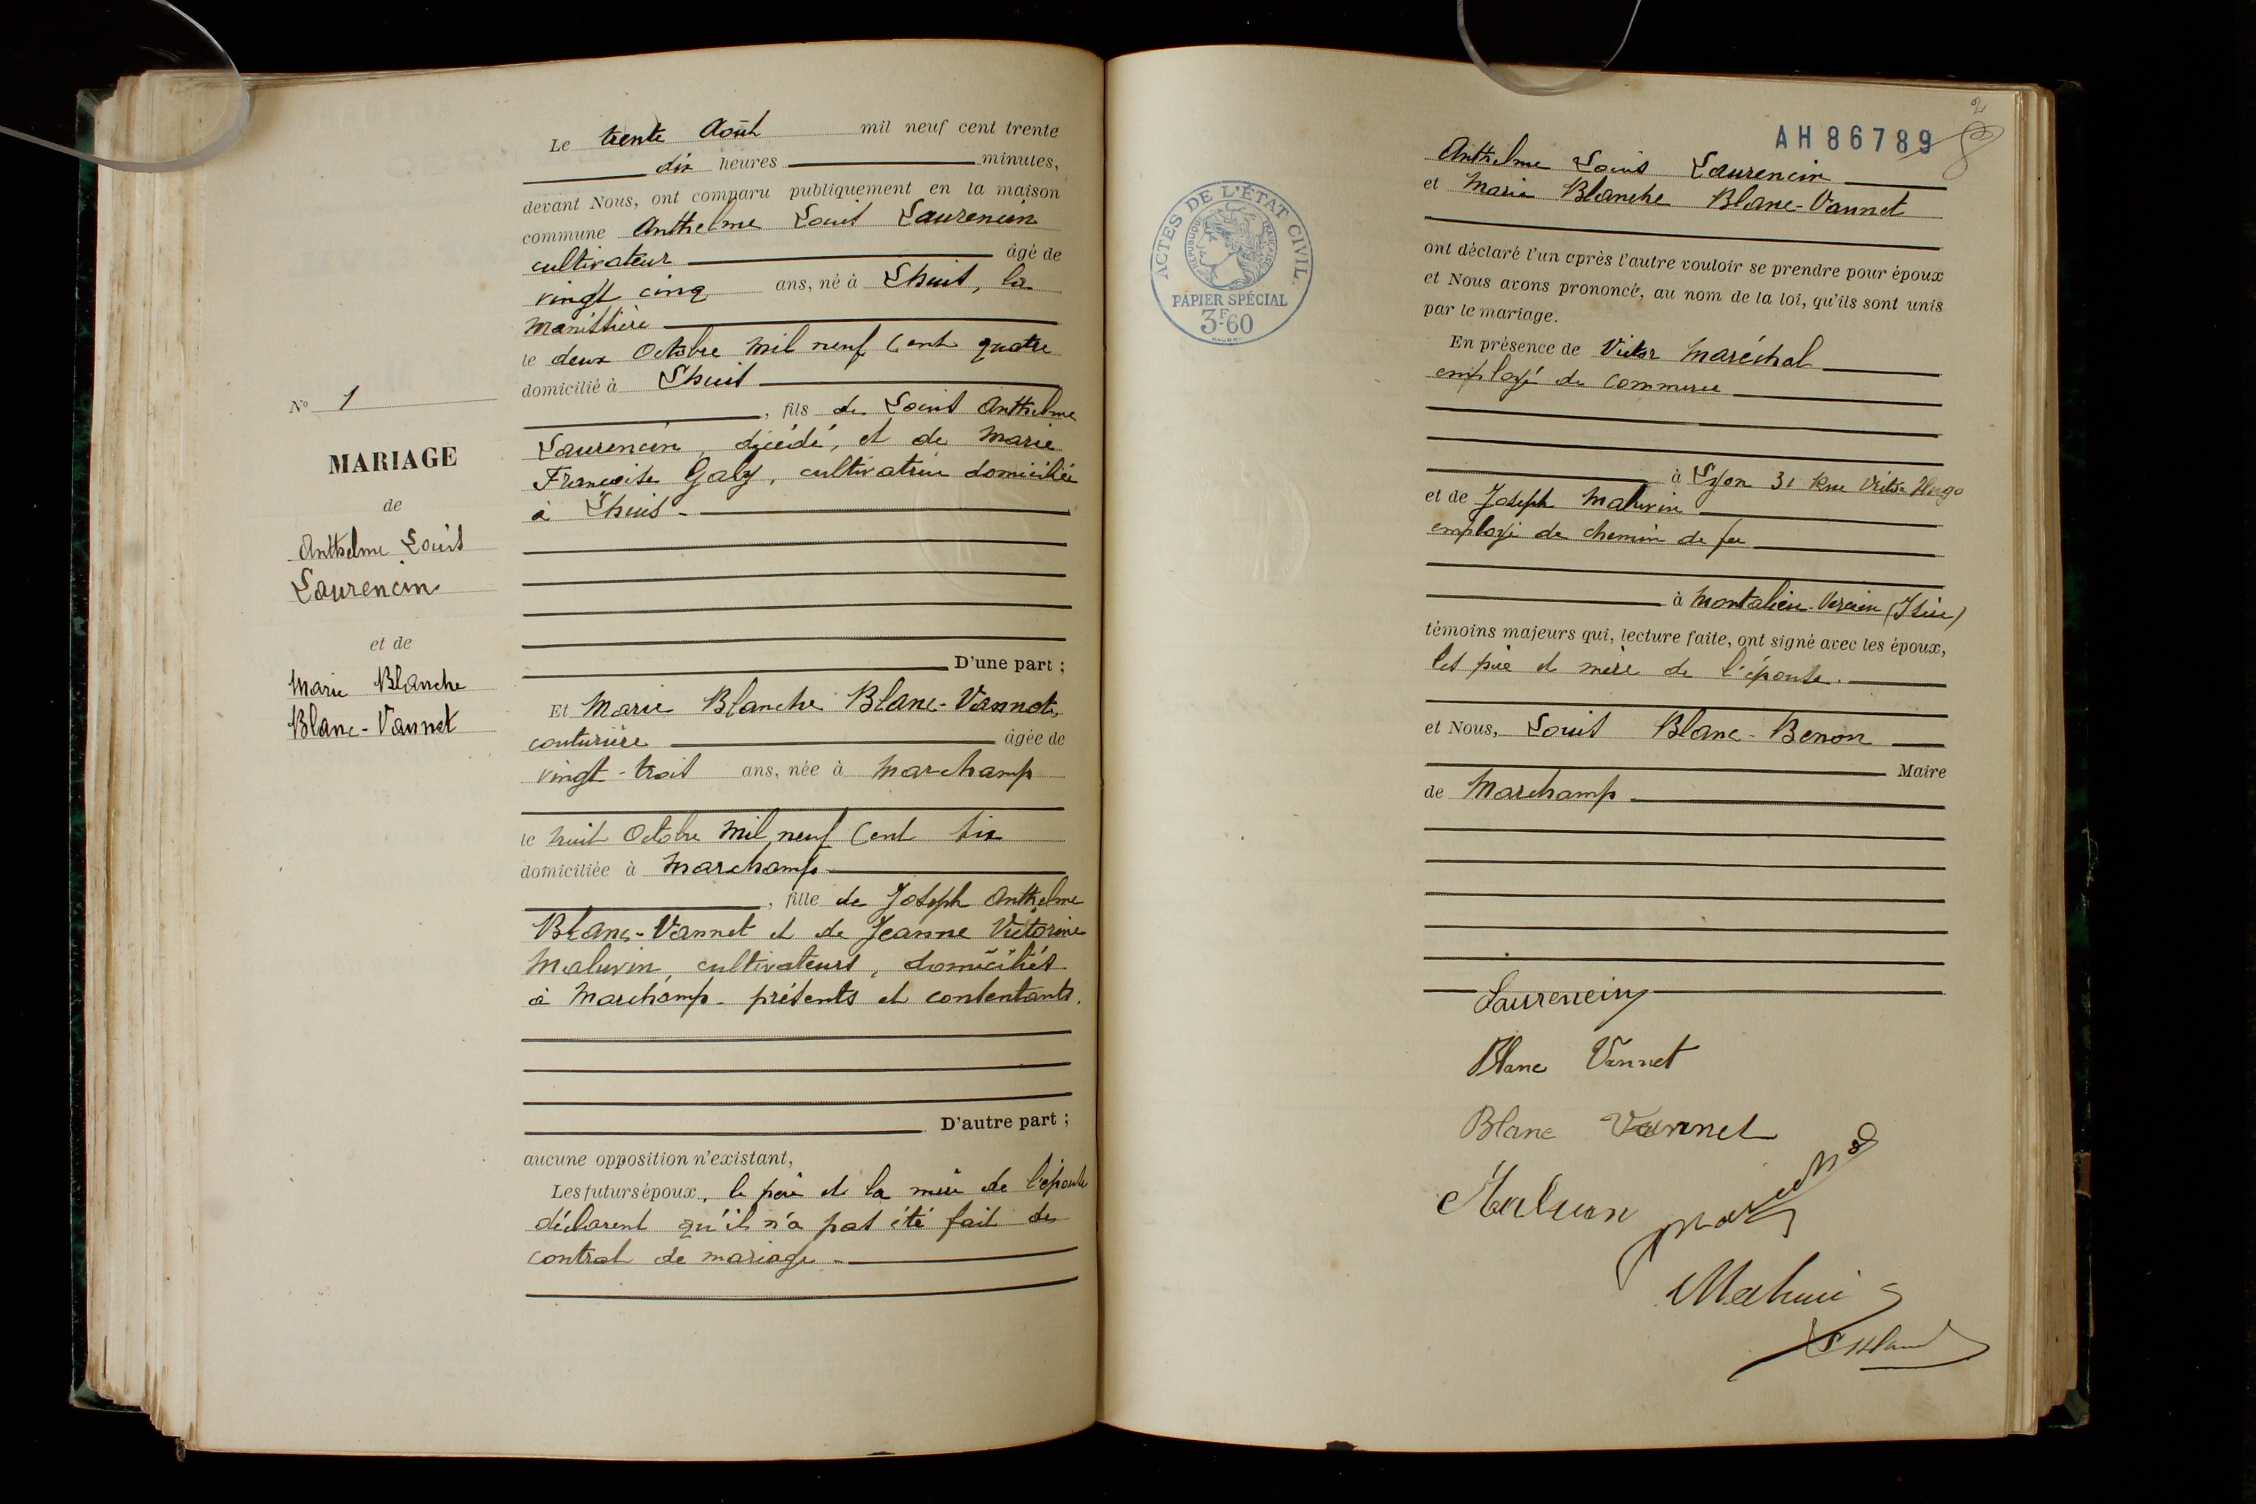 Le trente Août mil neuf cent trente
dix heures minutes,
devant Nous, ont comparu publiquement en la maison
commune Anthelme Louis Laurencin
cultivateur âgé de
vingt cinq ans, né à Lhuis, la
Manissière
le deux Octobre mil neuf Cent quatre
domicilié à Lhuis
, fils de Louis Anthelme
Laurencin, décédé, et de Marie
Françoise Galy, cultivatrice domiciliée
à Lhuis -
D'une part ;
Et Marie Blanche Blanc-Vannet,
couturière âgée de
vingt-trois ans, née à Marchamp
le huit Octobre mil neuf Cent six
domiciliée à Marchamp
, fille de Joseph Anthelme
Blanc-Vannet et de Jeanne Victorine
Maluvin, cultivateurs, domiciliés
à Marchamp - présents et consentants.
D'autre part ;
aucune opposition n'existant,
Les futurs époux, le père et la mère de l'épouse
déclarent qu'il n'a pas été fait de
contrat de mariage -
No 1
MARIAGE
de
Anthelme Louis
Laurencin
et de
Marie Blanche
Blanc-Vannet
2
AH 86789
ACTES DE L'ÉTAT CIVIL.
RÉPUBLIQUE FRANÇAISE
PAPIER SPÉCIAL
3F.60
Anthelme Louis Laurencin
et Marie Blanche Blanc-Vannet
ont déclaré l'un après l'autre vouloir se prendre pour époux
et Nous avons prononcé, au nom de la loi, qu'ils sont unis
par le mariage.
En présence de Victor Maréchal
employé de commerce
à Lyon 31 Rue Victor Hugo
et de Joseph Maluvin
employé de chemin de fer
à Montalieu-Vercieu (Isère)
témoins majeurs qui, lecture faite, ont signé avec les époux,
les père et mère de l'épouse.
et Nous, Louis Blanc-Benon
Maire
de Marchamp
Laurencin
Blanc Vannet
Blanc Vannet
Maluvin
Maluvin